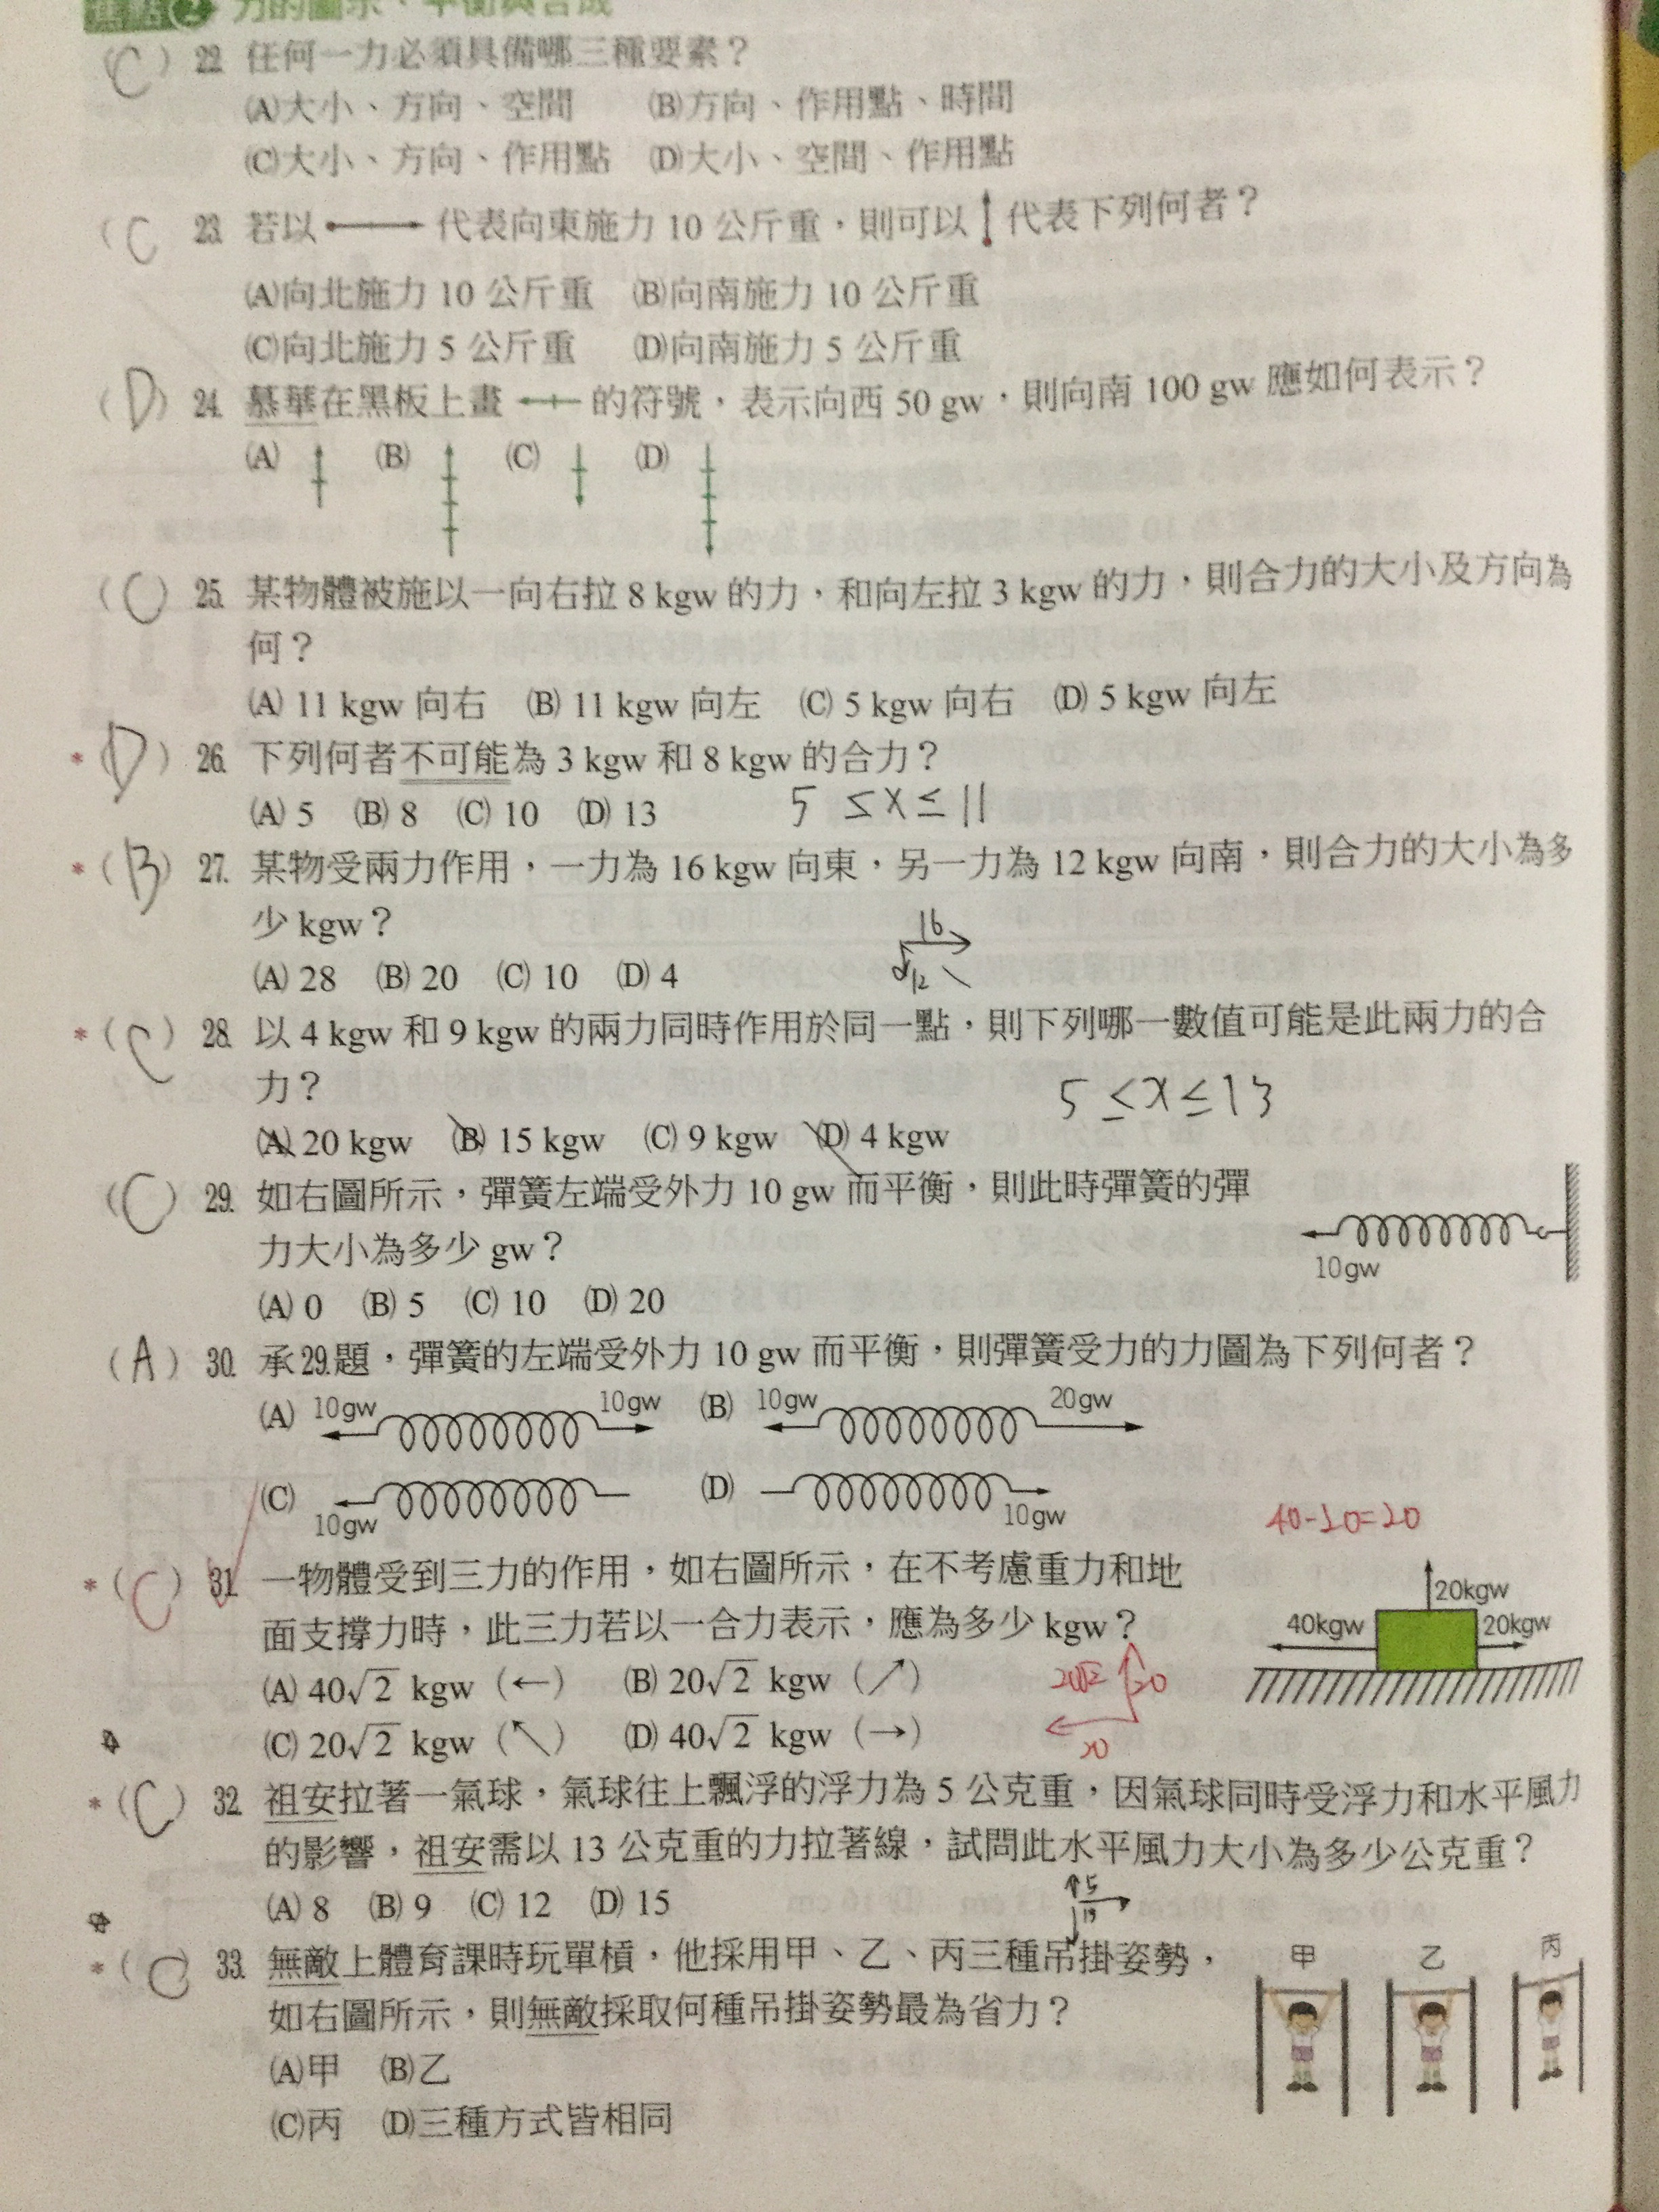 焦點2 力的圖示、平衡與合成
(C) 22. 任何一力必須具備哪三種要素？
(A)大小、方向、空間 (B)方向、作用點、時間
(C)大小、方向、作用點 (D)大小、空間、作用點
(C 23. 若以 代表向東施力 10 公斤重，則可以 代表下列何者？
(A)向北施力 10 公斤重 (B)向南施力 10 公斤重
(C)向北施力 5 公斤重 (D)向南施力 5 公斤重
(D) 24. 慕華在黑板上畫 的符號，表示向西 50 gw，則向南 100 gw 應如何表示？
(A) (B) (C) (D)
(C) 25. 某物體被施以一向右拉 8 kgw 的力，和向左拉 3 kgw 的力，則合力的大小及方向為
何？
(A) 11 kgw 向右 (B) 11 kgw 向左 (C) 5 kgw 向右 (D) 5 kgw 向左
*(D) 26. 下列何者不可能為 3 kgw 和 8 kgw 的合力？
(A) 5 (B) 8 (C) 10 (D) 13 5 ≤ x ≤ 11
*(B) 27. 某物受兩力作用，一力為 16 kgw 向東，另一力為 12 kgw 向南，則合力的大小為多
少 kgw？
16
12
(A) 28 (B) 20 (C) 10 (D) 4
*(C) 28. 以 4 kgw 和 9 kgw 的兩力同時作用於同一點，則下列哪一數值可能是此兩力的合
力？
5 ≤ x ≤ 13
(A) 20 kgw (B) 15 kgw (C) 9 kgw (D) 4 kgw
(C) 29. 如右圖所示，彈簧左端受外力 10 gw 而平衡，則此時彈簧的彈
力大小為多少 gw？
10gw
(A) 0 (B) 5 (C) 10 (D) 20
(A) 30. 承29.題，彈簧的左端受外力 10 gw 而平衡，則彈簧受力的力圖為下列何者？
(A) 10gw 10gw (B) 10gw 20gw
(C) 10gw (D) 10gw
40-20=20
*(C) 31. 一物體受到三力的作用，如右圖所示，在不考慮重力和地
面支撐力時，此三力若以一合力表示，應為多少 kgw？
20kgw
40kgw 20kgw
(A) 40√2 kgw (←) (B) 20√2 kgw (↗)
20√2 20
(C) 20√2 kgw (↖) (D) 40√2 kgw (→)
20
*(C) 32. 祖安拉著一氣球，氣球往上飄浮的浮力為 5 公克重，因氣球同時受浮力和水平風力
的影響，祖安需以 13 公克重的力拉著線，試問此水平風力大小為多少公克重？
(A) 8 (B) 9 (C) 12 (D) 15
5
13
*(C) 33. 無敵上體育課時玩單槓，他採用甲、乙、丙三種吊掛姿勢，
如右圖所示，則無敵採取何種吊掛姿勢最為省力？
甲 乙 丙
(A)甲 (B)乙
(C)丙 (D)三種方式皆相同